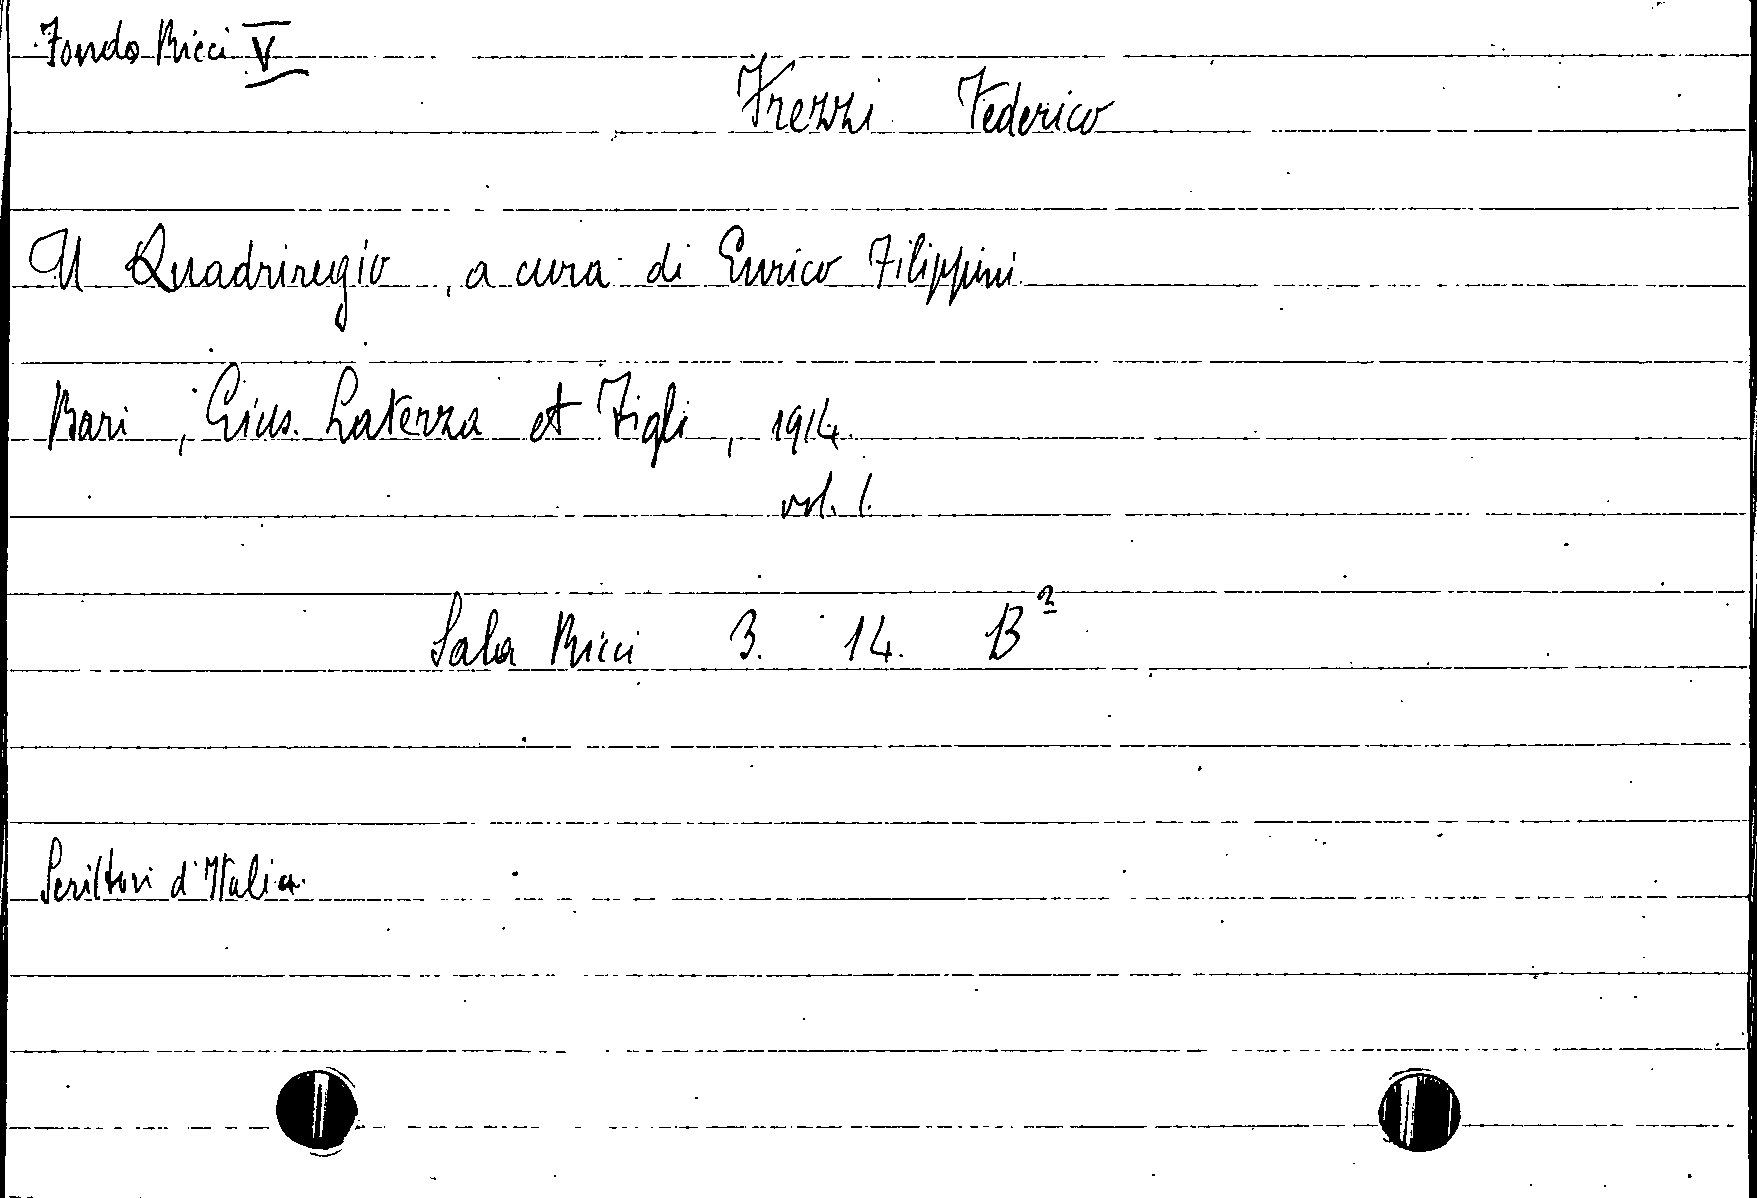 Fondo Ricci V
Frezzi Federico
Il Quadriregio, a cura di Enrico Filippini
Bari, Gius. Laterza et Figli, 1914.
vol. 1.
Sala Ricci 3. 14. B²
Scrittori d'Italia.